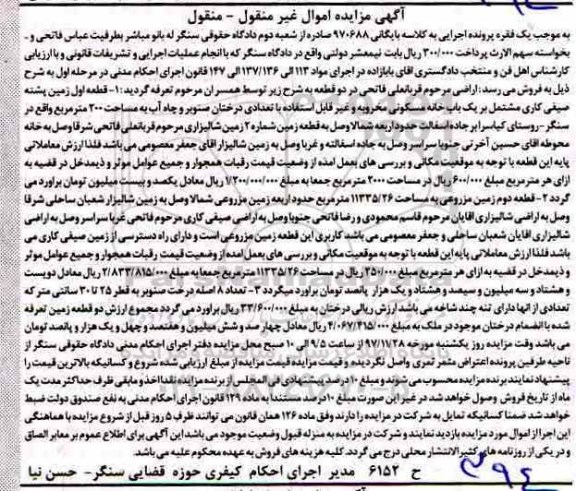 آگهی مزایده اموال غیر منقول - منقول
به موجب یک فقره پرونده اجرایی به کلاسه بایگانی ۹۷۰۶۸۸ صادره از شعبه دوم دادگاه حقوقی سنگر له بانو مباشر بطرفیت عباس فاتحی و
بخواسته سهم الارث پرداخت ۳۰۰/۰۰۰ ریال بابت نیمعشر دولتی واقع در دادگاه سنگر که با انجام عملیات اجرایی و تشریفات قانونی و با ارزیابی
کارشناس اهل فن و منتخب دادگستری اقای بابازاده در اجرای مواد ۱۱۳ الی ۱۳۷/۱۳۶ الی ۱۴۷ قانون اجرای احکام مدنی در مرحله اول به شرح
ذیل به فروش می رسد: اراضی مرحوم قربانعلی فاتحی در دو قطعه به شرح زیر توسط همسر ان مرحوم تعرفه گردید: ۱- قطعه اول زمین پشته
صیفی کاری مشتمل بر یک باب خانه مسکونی مخروبه و غیر قابل استفاده با تعدادی درختان صنوبر و چاه آب به مساحت ۲۰۰۰ مترمربع واقع در
سنگر - روستای کیاسرا بر جاده اسفالت حدود اربعه شمالا وصل به قطعه زمین شماره ۲ زمین شالیزاری مرحوم قربانعلی فاتحی شرقا وصل به خانه
محوطه اقای حسین آخرتی جنوبا سراسر وصل به جاده اسفالته و غربا وصل به زمین شالیزار اقای جعفر معصومی می باشد فلذا ارزش معاملاتی
پایه این قطعه با توجه به موقعیت مکانی و بررسی های بعمل امده از وضعیت قیمت رقبات همجوار و جمیع عوامل موثر و ذیمدخل در قضیه به
ازای هر مترمربع مبلغ ۶۰۰/۰۰۰ ریال در مساحت ۲۰۰۰ مترمربع جمعا به مبلغ ۱/۲۰۰/۰۰۰/۰۰۰ ریال معادل یکصد و بیست میلیون تومان براورد می
گردد ۲- قطعه دوم زمین مزروعی به مساحت ۱۱۳۳۵/۲۶ مترمربع حدود اربعه زمین مزروعی شمالا وصل به زمین شالیزار شعبان ساحلی شرقا
وصل به اراضی شالیزاری اقایان مرحوم قاسم محمودی و رضا فاتحی جنوبا وصل به اراضی صیفی کاری مرحوم فاتحی غربا سراسر وصل به اراضی
شالیزاری اقایان شعبان ساحلی و جعفر معصومی می باشد کاربری این قطعه زمین مزروعی است و دارای راه دسترسی از زمین صیفی کاری می
باشد فلذا ارزش معاملاتی پایه این قطعه با توجه به موقعیت مکانی و بررسی های بعمل امده از وضعیت قیمت رقبات همجوار و جمیع عوامل موثر
و ذیمدخل در قضیه به ازای هر مترمربع مبلغ ۲۵۰/۰۰۰ ریال در مساحت ۱۱۳۳۵/۲۶ مترمربع جمعا به مبلغ ۲/۸۳۳/۸۱۵/۰۰۰ ریال معادل دویست
و هشتاد و سه میلیون و سیصد و هشتاد و یک هزار پانصد تومان براورد میگردد ۳- تعداد ۸ اصله درخت صنوبر به قطر ۲۵ تا ۳۰ سانتی متر که
تعدادی از انها دارای تنه چند شاخه می باشد ارزش ریالی درختان به مبلغ ۳۳/۶۰۰/۰۰۰ ریال براورد می گردد. مجموع ارزش دو قطعه زمین تعرفه
شده با انضمام درختان موجود در ملک به مبلغ ۴/۰۶۷/۴۱۵/۰۰۰ ریال معادل چهار صد و شش میلیون و هفتصد و چهل و یک هزار و پانصد تومان
می باشد وقت مزایده روز یکشنبه مورخه ۹۷/۱۱/۲۸ از ساعت ۹/۵ الی ۱۰ صبح محل مزایده دفتر اجرای احکام مدنی دادگاه حقوقی سنگر از
ناحیه طرفین پرونده اعتراض مثمر ثمری واصل نگردیده و قیمت مزایده قیمت مزایده از مبلغ ارزیابی شده شروع و کسانیکه بالاترین قیمت را
پیشنهاد نمایند برنده مزایده محسوب می شوند و مبلغ ۱۰ درصد پیشنهادی فی المجلس از برنده مزایده اخذ و مابقی ظرف حداکثر مدت یک
ماه از تاریخ فروش وصول خواهد شد در غیر این صورت مبلغ ۱۰ درصد مستندا به ماده ۱۲۹ قانون اجرای احکام مدنی به نفع صندوق دولت ضبط
خواهد شد ضمنا کسانیکه تمایل به شرکت در مزایده را دارند وفق ماده ۱۲۶ همان قانون می توانند ظرف ۵ روز قبل از شروع مزایده با هماهنگی
این اجرا از اموال مورد مزایده بازدید نمایند و شرکت در مزایده به منزله قبول وضعیت موجود می باشد این آگهی برای اطلاع عموم بر معابر الصاق
و در یکی از روزنامه های کثیرالانتشار محلی درج می گردد. کلیه هزینه های فروش به عهده محکوم علیه می باشد.
ح ۶۱۵۲ مدیر اجرای احکام کیفری حوزه قضایی سنگر - حسن نیا